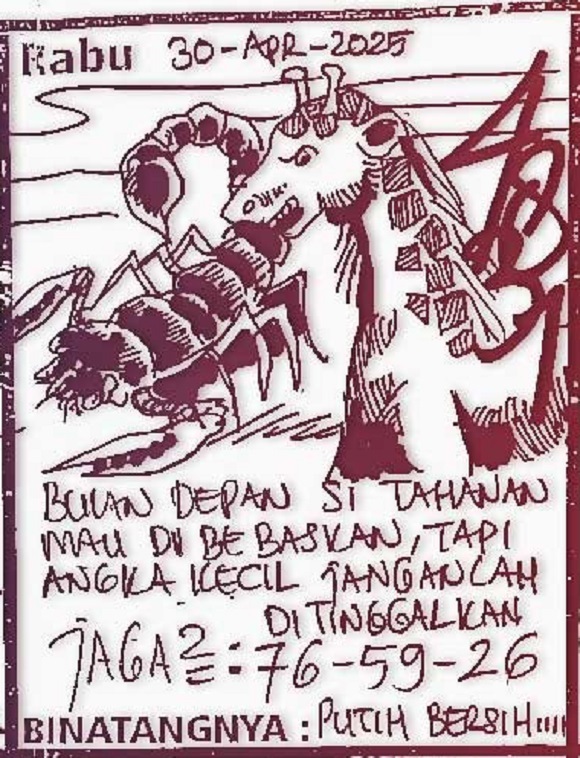 Rabu 30-APR-2025
BULAN DEPAN SI TAHANAN
MAU DI BEBASKAN, TAPI
ANGKA KECIL JANGANLAH
DITINGGALKAN
JAGA2 : 76-59-26
BINATANGNYA : PUTIH BERSIH....